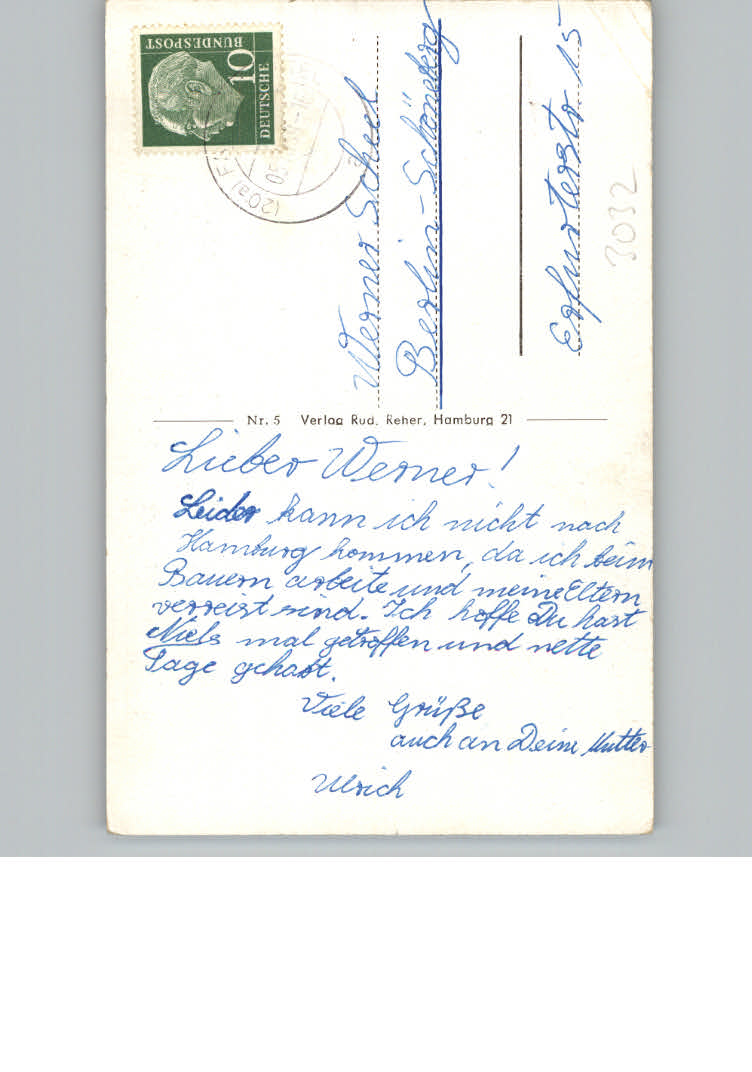 DEUTSCHE
BUNDESPOST
10
(20a)
Werner Scheel
Berlin-Schöneberg
Erfurterstr 15
3032
Nr. 5 Verlag Rud. Reher, Hamburg 21
Lieber Werner!
Leider kann ich nicht nach
Hamburg kommen, da ich beim
Bauern arbeite und meine Eltern
verreist sind. Ich hoffe Du hast
Niels mal getroffen und nette
Tage gehabt.
Viele Grüße
auch an Deine Mutter
Ulrich